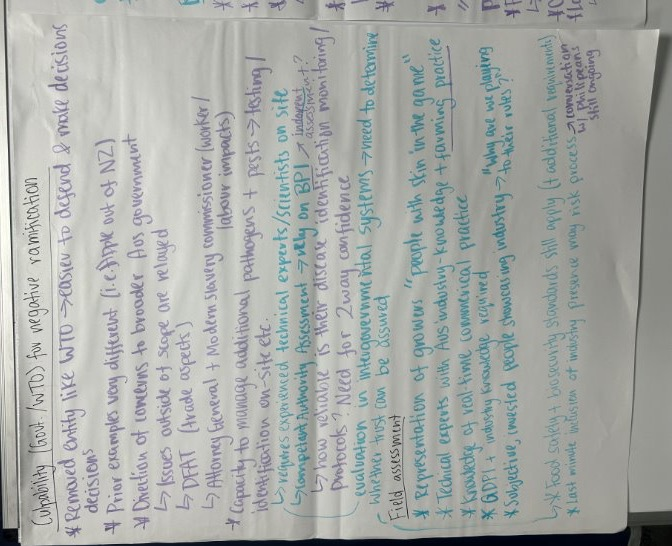 Culpability (Govt/WTO) for negative ramification
* Removed entity like WTO → easier to defend & make decisions
decisions
* Prior examples very different (i.e. apple out of NZ)
* Direction of concerns to broader Aus government
↳ Issues outside of scope are relayed
↳ DFAT (trade aspects)
↳ Attorney General + Modern slavery commissioner (worker/
labour impacts)
* Capacity to manage additional pathogens + pests → testing/
identification on-site etc.
↳ requires experienced technical experts/scientists on site
↳ Competent Authority Assessment → rely on BPI → indepent
assessment?
↳ how reliable is their disease identification monitoring/
Protocols? Need for 2way confidence
evaluation in intergovernmental systems → need to determine
whether trust can be assured
Field assessment
* Representation of growers "people with skin in the game"
* Technical experts with Aus industry-knowledge + farming practice
* Knowledge of real time commercial practice
* GDPI + industry knowledge required
* Subjective, invested people showcasing industry → "Why are we playing
to their rules?"
↳ * Food safety + biosecurity standards still apply (+ additional requirements)
* Last minute inclusion of industry presence may risk process → conversation
w/ Philippeans
still ongoing